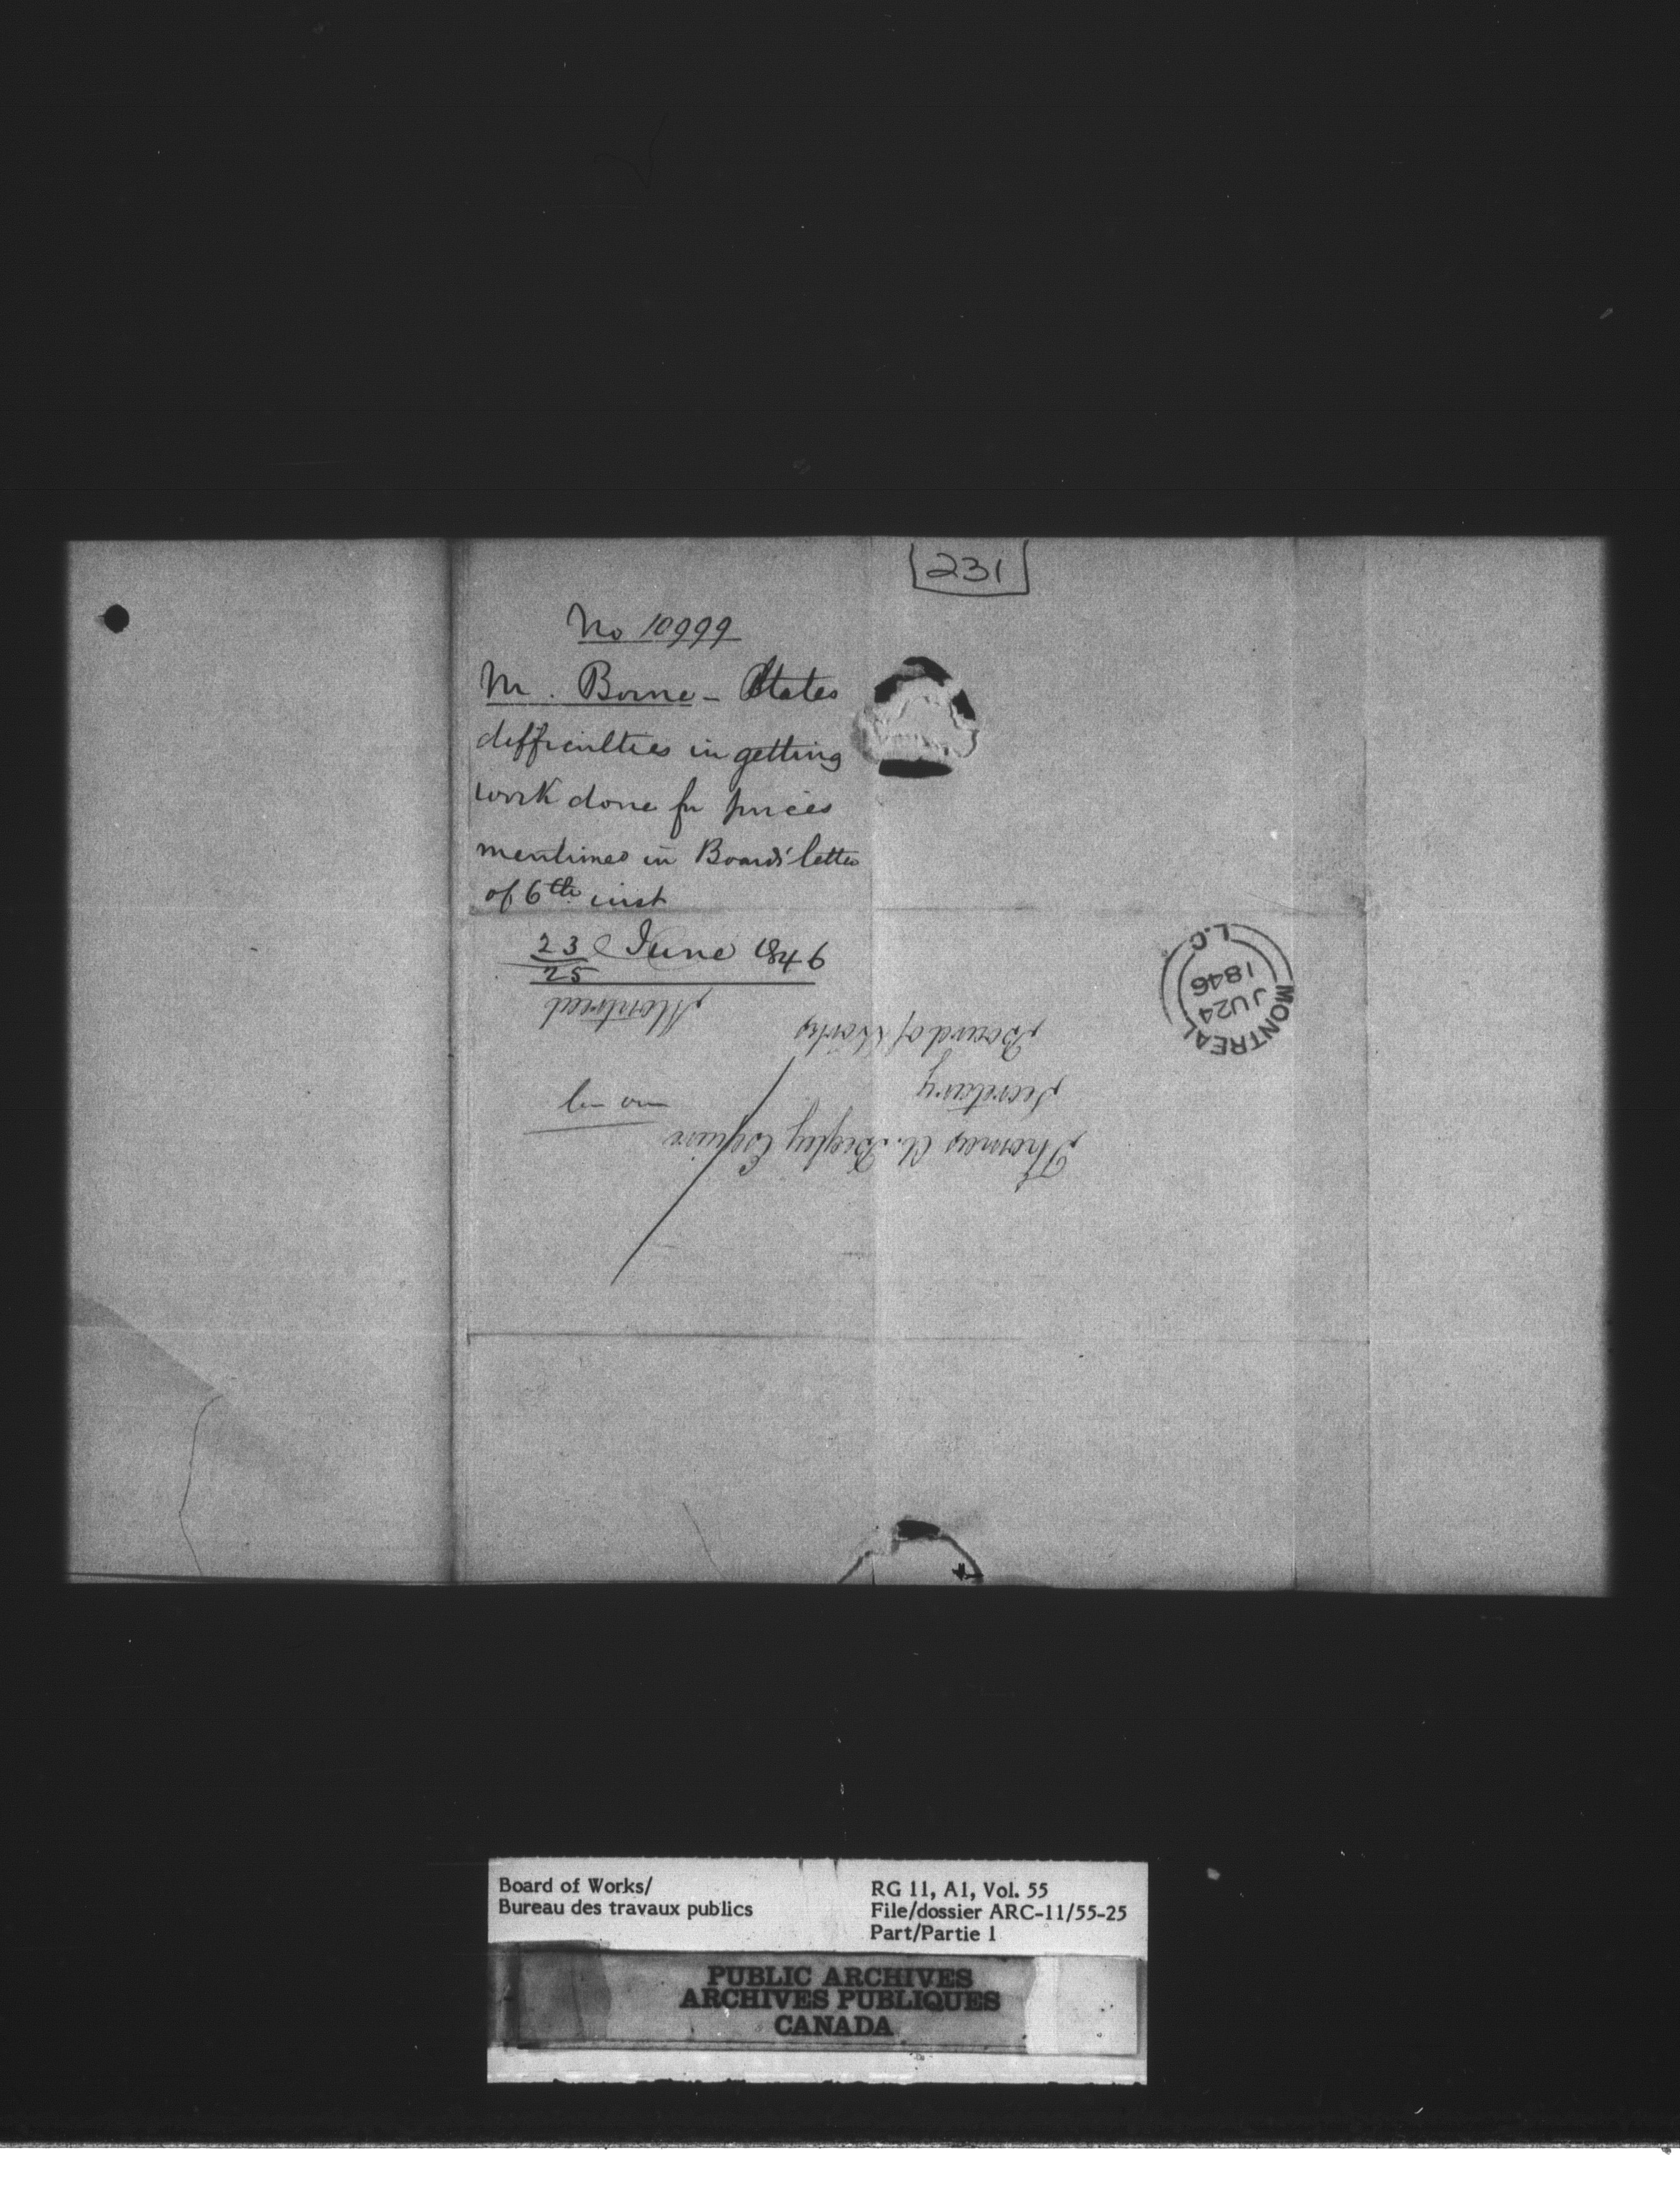 231
No 10999
M. Borne - States
difficulties in getting
work done for prices
mentioned in Boards' letter
of 6th inst
23 June 1846
25
Thomas A. Begley Esquire
Secretary
Board of Works
Montreal
MONTREAL
JU 24
1846
L.C.
Board of Works/
Bureau des travaux publics
RG 11, A1, Vol. 55
File/dossier ARC-11/55-25
Part/Partie 1
PUBLIC ARCHIVES
ARCHIVES PUBLIQUES
CANADA